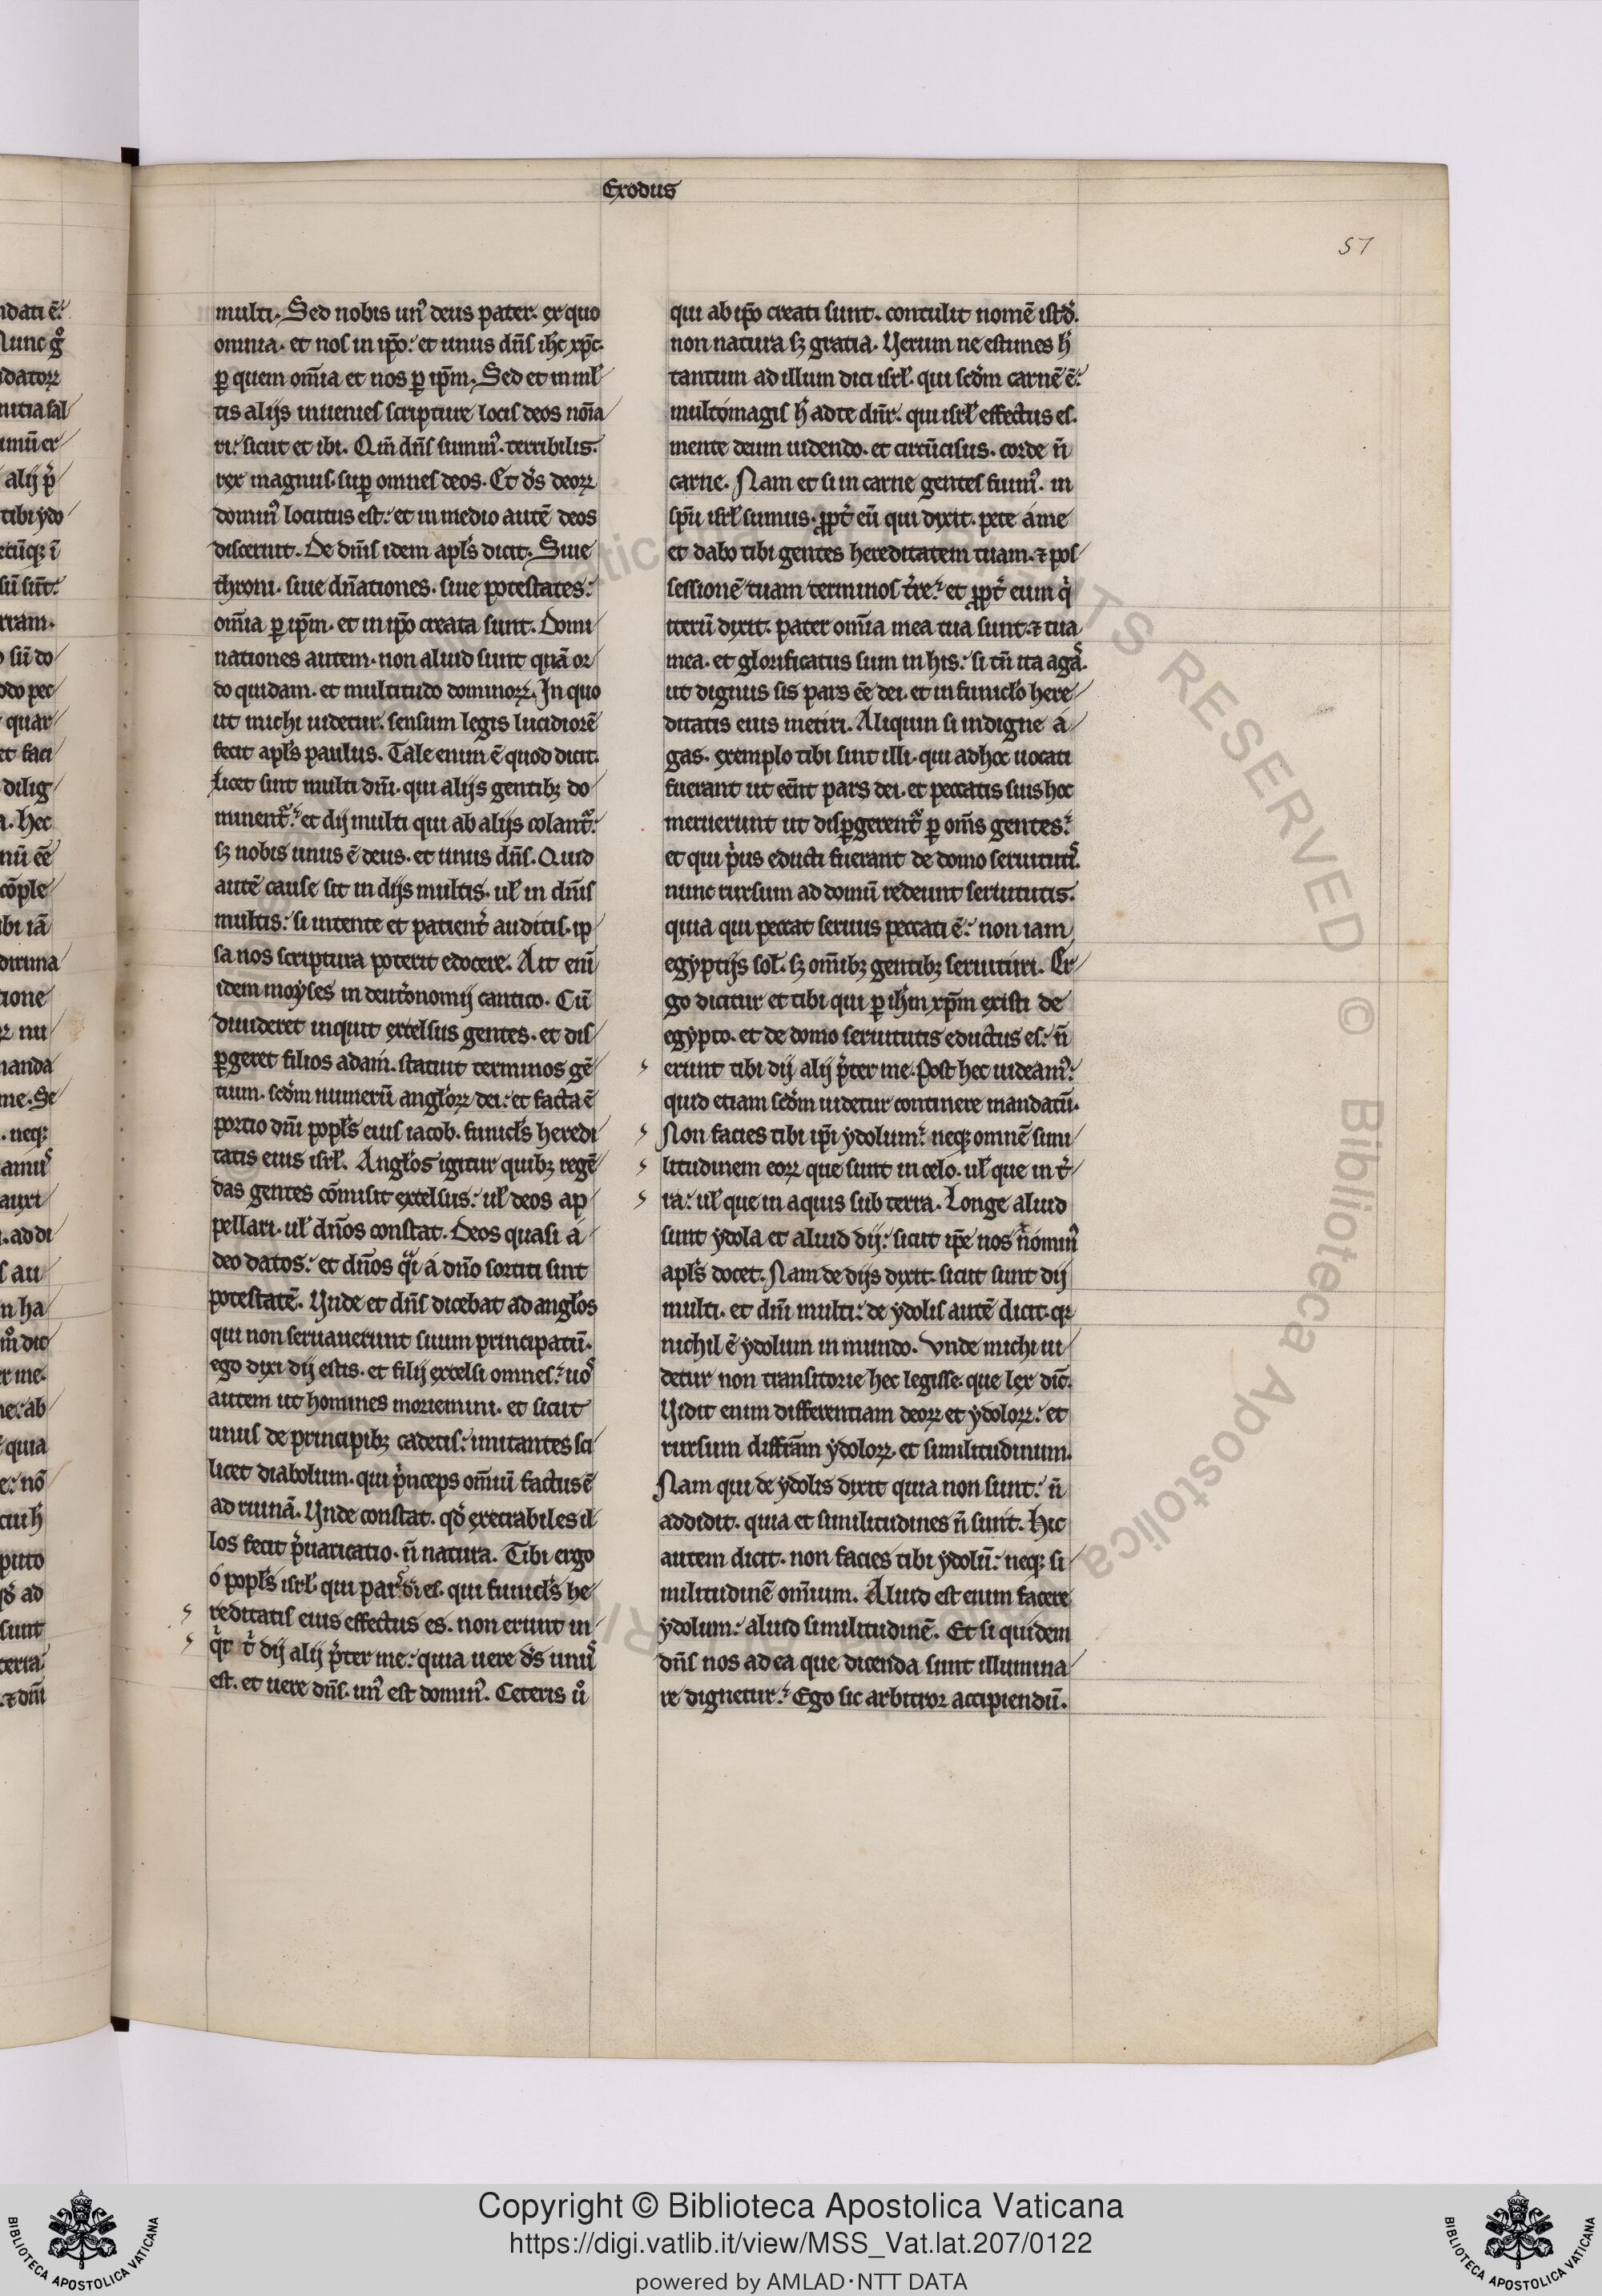 Exodus
57
multi. Sed nobis un⁹ deus pater. ex quo
omnia. et nos in ip̄o: et unus dn̄s ih̄c xp̄c.
ꝑ quem om̄ia et nos ꝑ ip̄m. Sed et in ml̄
tis alijs inuenies scripture locis deos no͞ia
ri: sicut et ibi. Qm̄ dn̄s summ⁹. terribilis.
rex magnus. suꝑ omnes deos. Et d̄s deoꝝ
domin⁹ locutus est: et in medio autē deos
discernit. De dn̄is idem apl̄s dicit. Siue
throni. siue dn̄ationes. siue potestates:
om̄ia ꝑ ip̄m. et in ip̄o creata sunt. Domi
nationes autem. non aliud sunt quā or
do quidam. et multitudo dominoꝝ. In quo
ut michi uidetur. sensum legis lucidiorē
fecit apl̄s paulus. Tale enim ē quod dicit.
licet sint multi dn̄i. qui alijs gentibꝫ do
minent᷑: et dij multi qui ab alijs colant᷑:
sꝫ nobis unus ē deus. et unus dn̄s. Quid
autē cause sit in dijs multis. ul̄ in dn̄is
multis: si intente et patient̉ auditis. ip
sa nos scriptura poterit edocere. Ait eni᷒
idem moyses in deut̉onomij cantico. Cū
diuideret inquit excelsus gentes. et dis
ꝑgeret filios adam. statuit terminos gē
tium. scd̄m numerū angl̄oꝝ dei: et facta ē
portio dn̄i popl̄s eius iacob. funicl̄s heredi
tatis eius isrl̄. Angl̄os igitur quibꝫ regē
das gentes cōmisit excelsus: ul̄ deos ap
pellari. ul̄ dn̄os constat. Deos quasi á
deo datos: et dn̄os qͣi á dn̄o sortiti sint
potestatē. Vnde et dn̄s dicebat ad angl̄os
qui non seruauerunt suum principatū.
ego dixi dij estis. et filij excelsi omnes: uoˢ
autem ut homines moriemini. et sicut
unus de principibꝫ cadetis: imitantes sci
licet diabolum. qui p̉nceps om̄iū factus ē
ad ruinā. Vnde constat. qd̄ execrabiles il
los fecit p̉uaricatio. n̄ natura. Tibi ergo
ó popl̄s isrl̄. qui parˢ dī es. qui funicl̄s he
reditatis eius effectus es. non erunt in
qͥt t̉ dij alij p̉ter me: quia uere d̄s unuˢ
est. et uere dn̄s. un⁹ est domin⁹. Ceteris ů
qui ab ip̄o creati sunt. contulit nomē istd̄.
non natura sꝫ gratia. Verum ne estimes h̄
tantum ad illum dici isrl̄. qui scd̄m carnē ē:
multomagis h̄ ad te dn̄r. qui isrl̄ effectus es.
mente deum uidendo. et circūcisus. corde n̄
carne. Nam et si in carne gentes sum⁹. in
sp̄u isrl̄ sumus. ꝓpt̉ eū qui dixit. pete á me
et dabo tibi gentes hereditatem tuam. ⁊ pos
sessionē tuam terminos t̉re: et ꝓpt̉ eum qͥ
iterū dixit. pater om̄ia mea tua sunt. ⁊ tua
mea. et glorificatus sum in his: si tn̄ ita agaˢ.
ut dignus sis pars ēe dei. et in funicl̄o here
ditatis eius metiri. Alioquin si indigne a
gas. exemplo tibi sint illi. qui ad hoc uocati
fuerant ut ee͞nt pars dei. et peccatis suis hoc
meruerunt ut disꝑgerent᷑ ꝑ om̄s gentes:
et qui p̉us educti fuerant de domo seruitutiˢ.
nunc rursum ad domū redeunt seruitutis.
quia qui peccat seruus peccati ē: non iam
egyptijs sol̄. sꝫ om̄ibꝫ gentibꝫ seruituri. Er
go dicitur et tibi qui ꝑ ih̄m xp̄m existi de
egypto. et de domo seruitutis eductus es: n̄
erunt tibi dij alij p̉ter me. Post hec uideam⁹.
quid etiam scd̄m uidetur continere mandatū.
Non facies tibi ip̄i ydolum: neqꝫ omnē simi
litudinem eoꝝ que sunt in celo. ul̄ que in t̉
ra: ul̄ que in aquis sub terra. Longe aliud
sunt ydola et aliud dij: sicut ip̄e nos n̉omin⁹
apl̄s docet. Nam de dijs dixit. sicut sunt dij
multi. et dn̄i multi: de ydolis autē dicit. qꝛ
nichil ē ydolum in mundo. Vnde michi ui
detur non transitorie hec legisse. que lex dic̄.
Vidit enim differentiam deoꝝ et ydoloꝝ: et
rursum diffr̄am ydoloꝝ. et similitudinum.
Nam qui de ydolis dixit quia non sunt: n̄
addidit. quia et similitudines n̄ sunt. Hic
autem dicit. non facies tibi ydolū: neqꝫ si
militudinē om̄ium. Aliud est enim facere
ydolum: aliud similitudinē. Et si quidem
dn̄s nos ad ea que dicenda sunt illumina
re dignetur: Ego sic arbitror accipiendū.
Copyright © Biblioteca Apostolica Vaticana
https://digi.vatlib.it/view/MSS_Vat.lat.207/0122
powered by AMLAD·NTT DATA